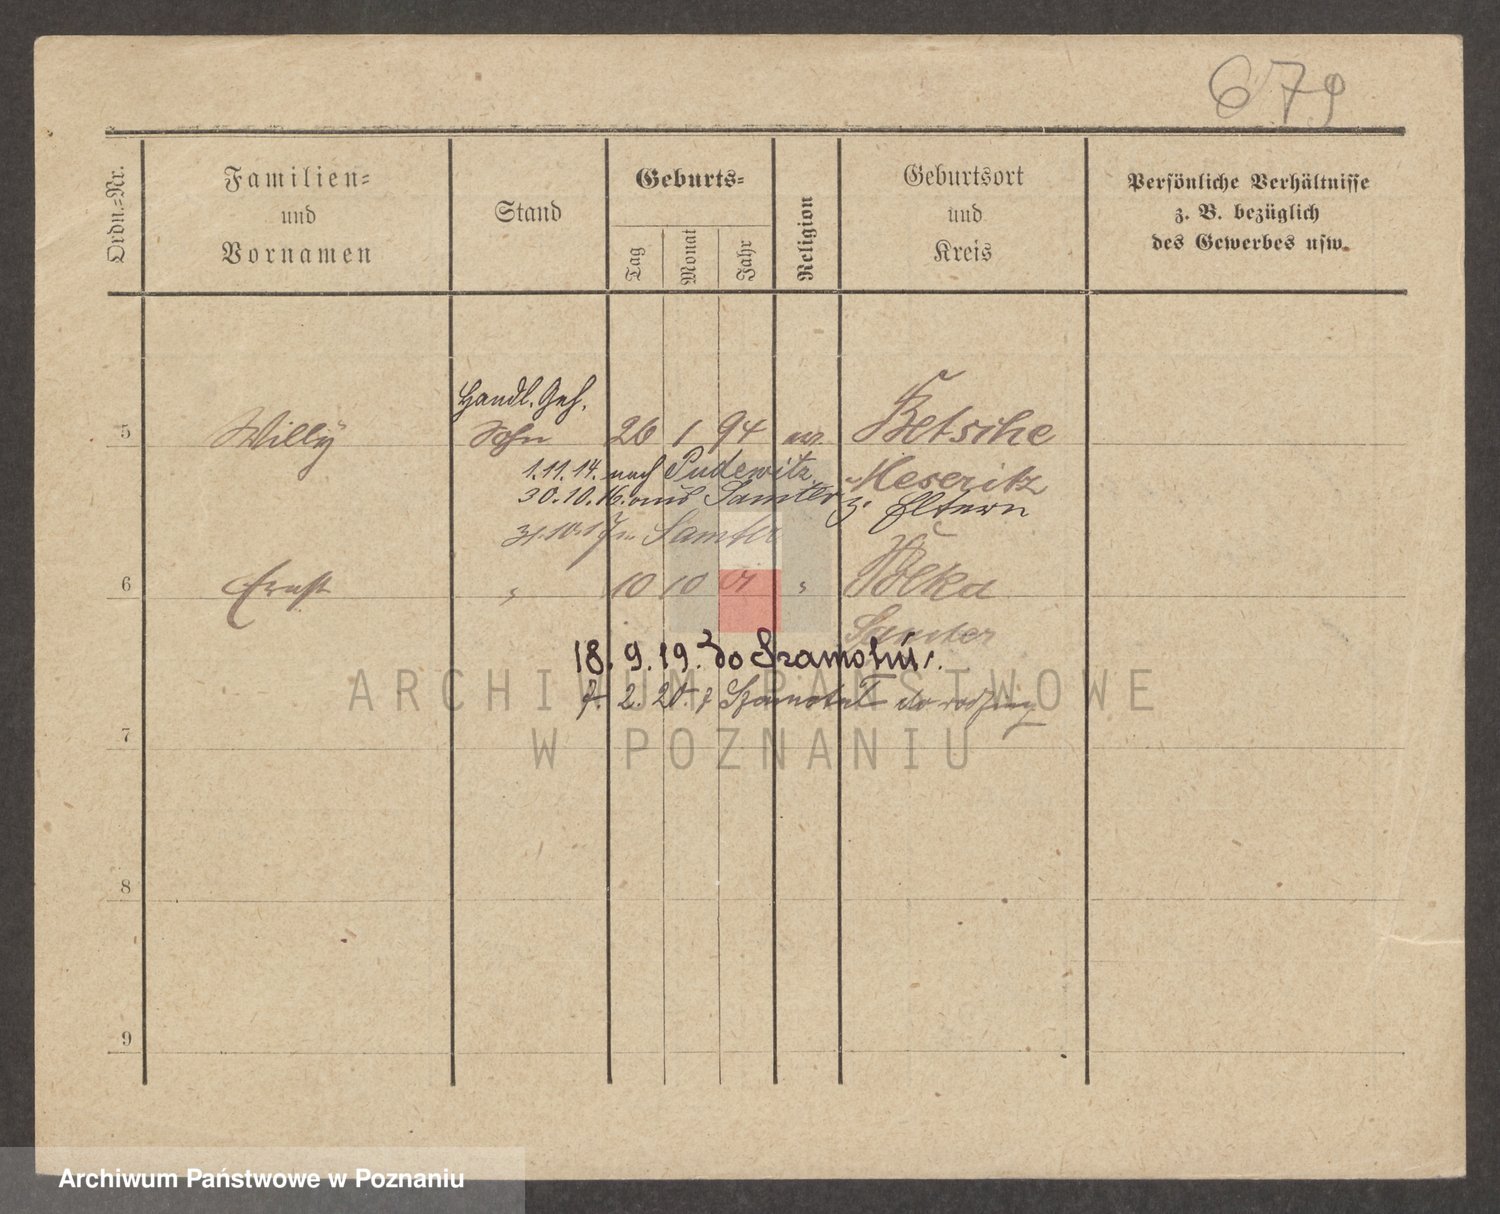 679
Ordn.-Nr.
Familien-
und
Vornamen
Stand
Geburts-
Tag
Monat
Jahr
Religion
Geburtsort
und
Kreis
Persönliche Verhältnisse
z. B. bezüglich
des Gewerbes usw.
Handl. Geh.
5 Willy Sohn 26 1 94 ev. Betsche
1.11.14. nach Pudewitz Meseritz
30.10.16. aus Samter z. Eltern
31.10.17 n. Samter
6 Ernst " 10 10 01 " Wilka
Samter
18. 9. 19. do Szamotuł.
7. 2. 20. z Szamotuł do rodziny
7
8
9
ARCHIWUM PAŃSTWOWE
W POZNANIU
Archiwum Państwowe w Poznaniu